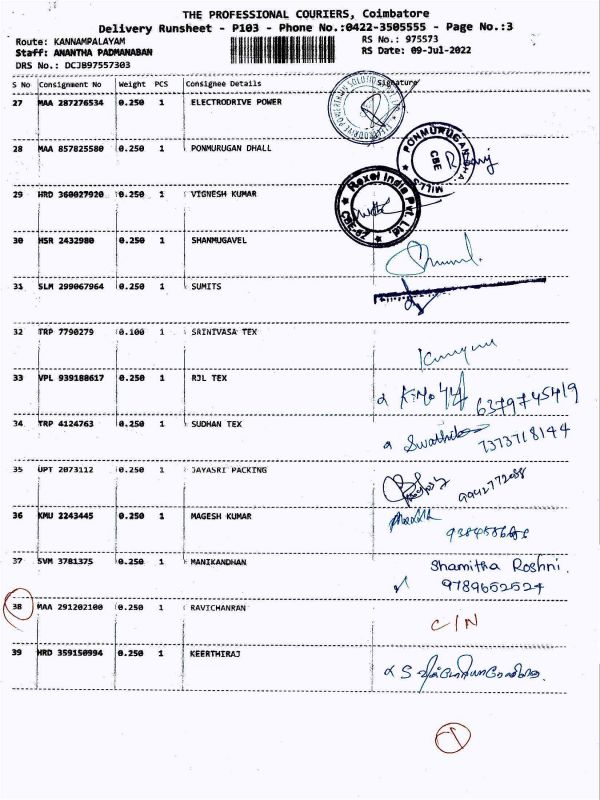 THE PROFESSIONAL COURIERS, Coimbatore
Delivery Runsheet - P103 - Phone No.:0422-3505555 - Page No.:3
Route: KANNAMPALAYAM RS No.: 975573
Staff: ANANTHA PADMANABAN RS Date: 09-Jul-2022
DRS No.: DCJB97557303
S No Consignment No Weight PCS Consignee Details Signature
27 MAA 287276534 0.250 1 ELECTRODRIVE POWER
28 MAA 857825580 0.250 1 PONMURUGAN DHALL
PONMURUGAN MILLS CBE
29 HRD 360027920 0.250 1 VIGNESH KUMAR
Rexel India Pvt. Ltd. CBE-62
30 HSR 2432980 0.250 1 SHANMUGAVEL
31 SLM 299067964 0.250 1 SUMITS
32 TRP 7790279 0.100 1 SRINIVASA TEX
33 VPL 939188617 0.250 1 RJL TEX
6379745419
34 TRP 4124763 0.250 1 SUDHAN TEX
Swathi 7373718144
35 UPT 2073112 0.250 1 JAYASRI PACKING
9942772088
36 KMU 2243445 0.250 1 MAGESH KUMAR
37 SVM 3781375 0.250 1 MANIKANDHAN
Shamitha Roshni.
9789652524
38 MAA 291202100 0.250 1 RAVICHANRAN C/N
39 HRD 359150994 0.250 1 KEERTHIRAJ